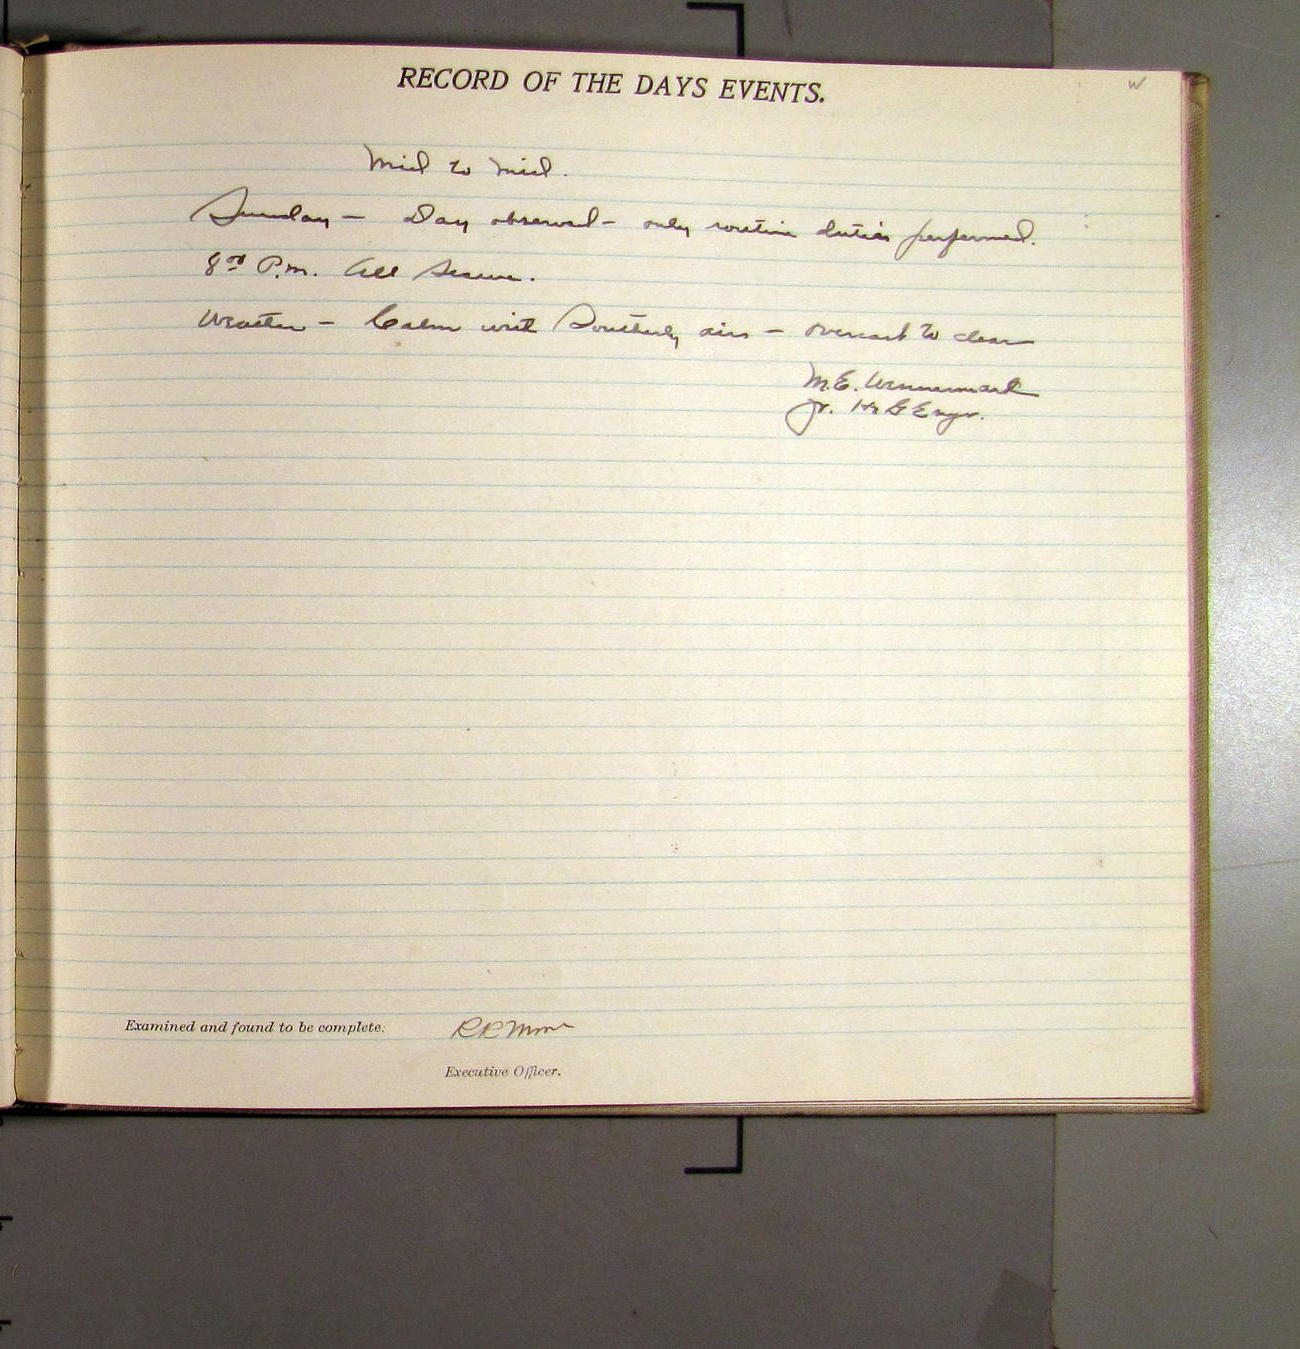 RECORD OF THE DAYS EVENTS.
W
Mid to Mid.
Sunday – Day observed – only routine duties performed.
8 00 P.M. All Secure.
Weather – Calm with Southerly airs – overcast to clear
M.E. Wennermark
Jr. H. & G. Engr.
Examined and found to be complete.
R R Moore
Executive Officer.